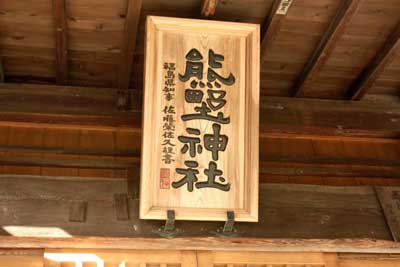 熊野神社
福島県知事 佐藤栄佐久謹書